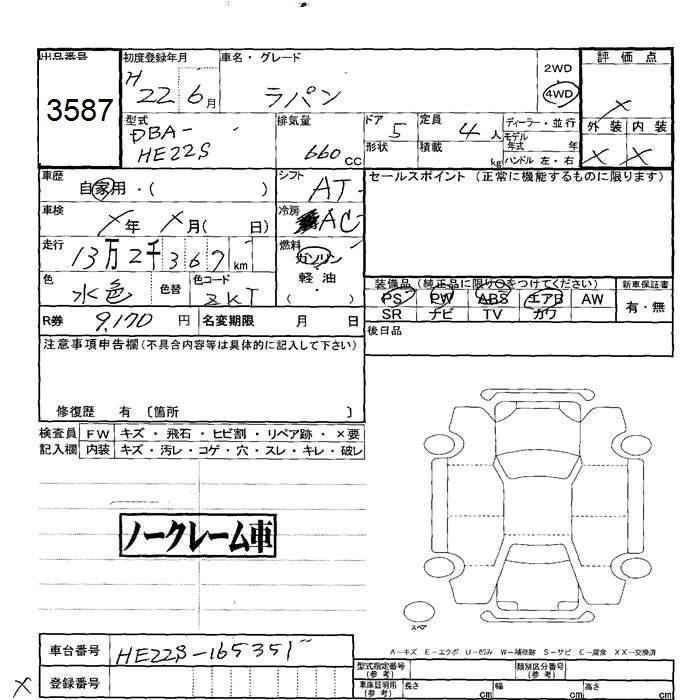 出品番号 初度登録年月 車名・グレード 2WD 評価点
3587 H 22 6月 ラパン 4WD ×
型式 排気量 ドア 定員 ディーラー・並行 外装 内装
DBA-HE22S 660CC 5 4人 モデル年式 年 × ×
形状 積載 kg ハンドル 左・右
車歴 シフト セールスポイント (正常に機能するものに限ります)
自家用・( ) AT
車検 冷房
×年 ×月( 日) AC
走行 燃料
13万2千367km ガソリン
色 色替 色コード 軽油
水色 ZKT ( )
装備品 (純正品に限り○をつけてください) 新車保証書
PS PW ABS エアB AW 有・無
SR ナビ TV カワ
R券 9,170円 名変期限 月 日
後日品
注意事項申告欄(不具合内容等は具体的に記入して下さい)
修復歴 有 〔箇所 〕
検査員 FW キズ・飛石・ヒビ割・リペア跡・×要
記入欄 内装 キズ・汚レ・コゲ・穴・スレ・キレ・破レ
ノークレーム車
スペア
A-キズ E-エクボ U-凹み W-補修跡 S-サビ C-腐食 XX-交換済
車台番号 HE22S-165351
× 登録番号
型式指定番号(参考) 類別区分番号(参考)
車庫証明用(参考) 長さ cm 幅 cm 高さ cm